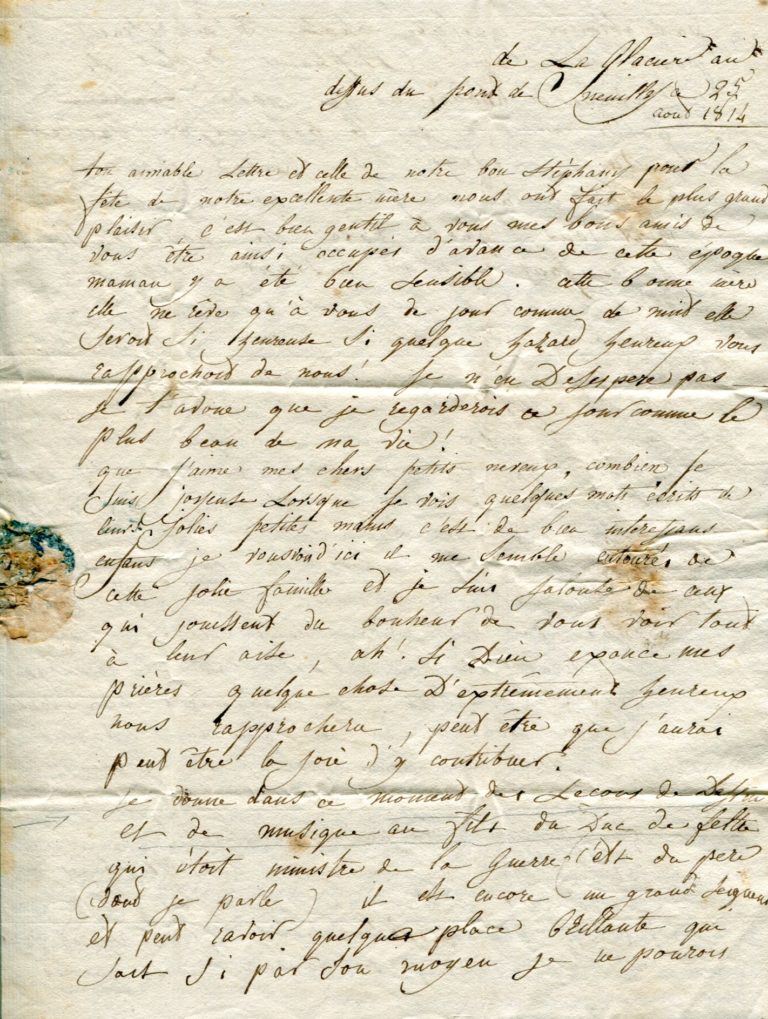 de La Glaciere au
dessus du pont de Neuilly ce 25
aout 1814
ton aimable Lettre et celle de notre bon Stéphany pour la
fête de notre excellente mère nous ont fait le plus grand
plaisir c'est bien gentil à vous mes bons amis de
vous être ainsi occupés d'avance de cette époque
maman y a été bien sensible. cette bonne mère
elle ne rêve qu'à vous de jour comme de nuit elle
seroit si heureuse si quelque hazard heureux vous
rapprochoit de nous! je n'en Desespere pas
je t'avoue que je regarderois ce jour comme le
plus beau de ma vie!
que j'aime mes chers petits neveux, combien je
suis joyeuse Lorsque je vois quelques mots écrits de
leurs Jolies petites mains c'est de bien intéressans
enfans je vous ici il me semble entourés de
cette jolie famille et je suis jalouse de ceux
qui jouissent du bonheur de vous voir tout
à leur aise, ah! si Dieu exauce mes
prières quelque chose D'extrêmement heureux
nous rapprochera, peut être que j'aurai
peut être la joie d'y contribuer.
je donne dans ce moment des Lecons de Dessin
et de musique au fils du Duc de feltre
qui étoit ministre de la Guerre (c'est du pere
dont je parle) il est encore un grand Seigneur
et peut ravoir quelque place brillante qui
sait si par son moyen je ne pourois